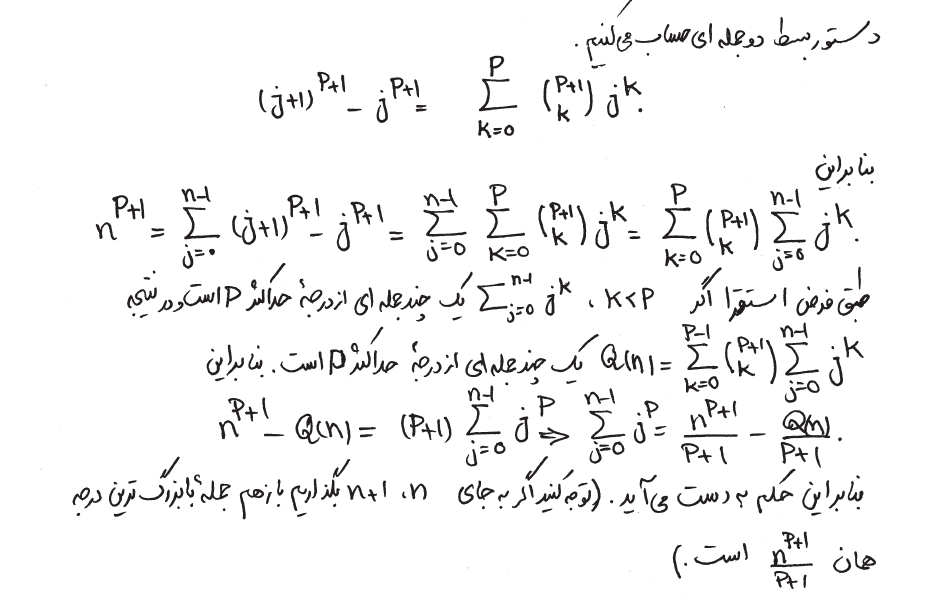 دستور بسط دوجمله ای حساب می کنیم.
(j+1)^{P+1} - j^{P+1} = \sum_{k=0}^{P} \binom{P+1}{k} j^k.
بنابراین
n^{P+1} = \sum_{j=0}^{n-1} (j+1)^{P+1} - j^{P+1} = \sum_{j=0}^{n-1} \sum_{k=0}^{P} \binom{P+1}{k} j^k = \sum_{k=0}^{P} \binom{P+1}{k} \sum_{j=0}^{n-1} j^k.
طبق فرض استقرا اگر k<P ، \sum_{j=0}^{n-1} j^k یک چندجمله ای از درجهٔ حداکثر P است و در نتیجه
Q(n) = \sum_{k=0}^{P-1} \binom{P+1}{k} \sum_{j=0}^{n-1} j^k یک چندجمله ای از درجهٔ حداکثر P است. بنابراین
n^{P+1} - Q(n) = (P+1) \sum_{j=0}^{n-1} j^P \Rightarrow \sum_{j=0}^{n-1} j^P = \frac{n^{P+1}}{P+1} - \frac{Q(n)}{P+1}.
بنابراین حکم به دست می آید. (توجه کنید اگر به جای n ، n+1 بگذاریم باز هم جملهٔ با بزرگ ترین درجه
همان \frac{n^{P+1}}{P+1} است.)